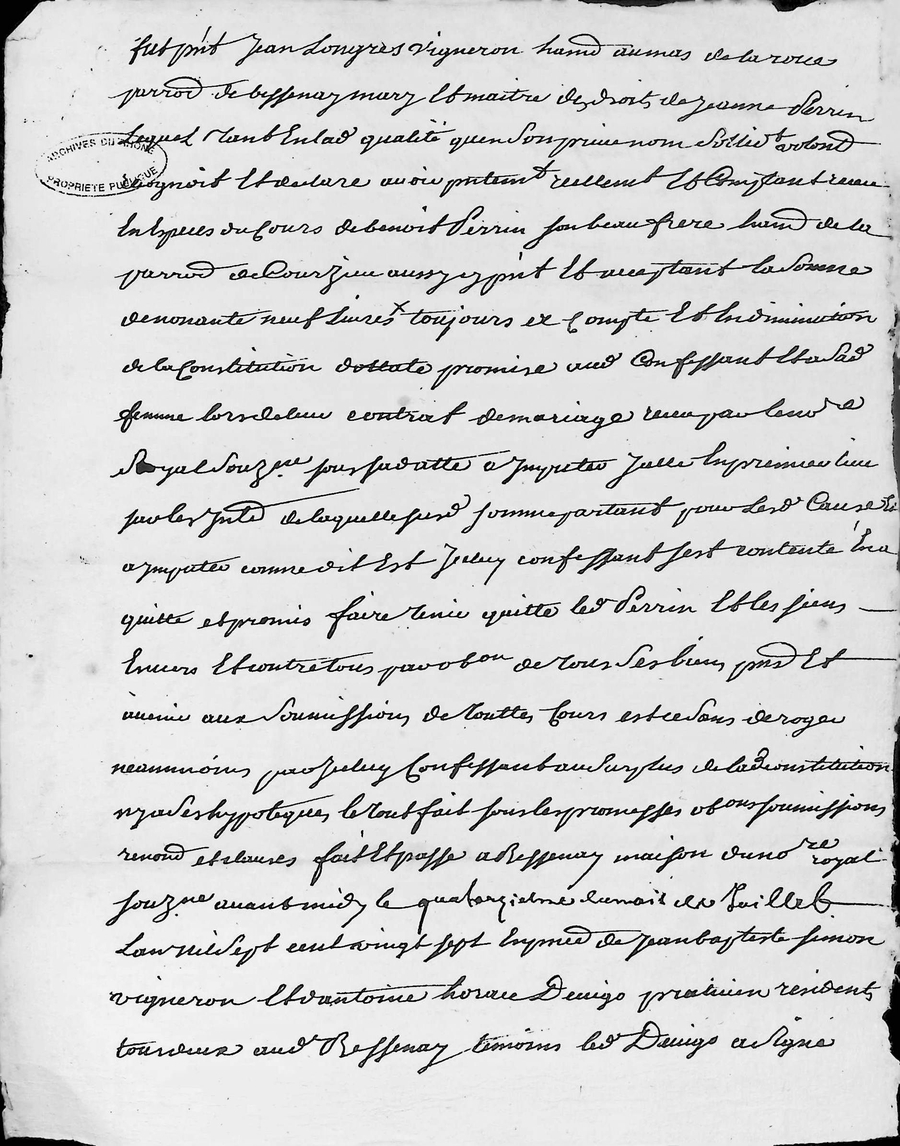 fut pñt Jean Longres vigneron habitd au mas de la roue
parrod de bessenay mary Et maitre des droits de jeanne Perrin
lequel Tant En lad qualité quen Son prive nom Sollidt volond
ARCHIVES DU RHÔNE
PROPRIÉTÉ PUBLIQUE
Cognoit Et declare avoir putemt reellemt Et Comptant receu
En Especes du Cours de benoit Perrin son beau frere habd de la
parrod de Courzieu aussy y pñt Et acceptant la Somme
de nonante neuf Livres x toujours a Compte Et En diminution
de la Constitution dottale promise aud Confessant Et a Sad
femme lors de leur contrat de mariage receu par le nore
Royal Souzne sous sa datte a Imputer Jcelle En premier lieu
par les Intd de laquelle susd somme partant pour Lesd Causes Et
a Imputer comme dit Est Jceluy confessant sest contenté En a
quitte et promis faire Tenir quitte led Perrin Et les siens
Envers Et contre tous par obon de Tous Ses biens pnsd Et
avenir aux Soumissions de Touttes Cours est ce sans deroger
neanmoins par Jceluy Confessant au Surplus de lad Constitution
ny a Ses hypoteques le Tout fait sous les promesses obons soumissions
renond et clauses fait Et passe a Bessenay maison du nore royal
souzne avant midy le quatorzieme du mois de Juillet
Lan mil Sept cent vingt sept En pnce de Jean baptiste simon
vigneron Et dantoine horace Denigo praticien résidents
tous deux aud Bessenay temoins led Denigo a Signé